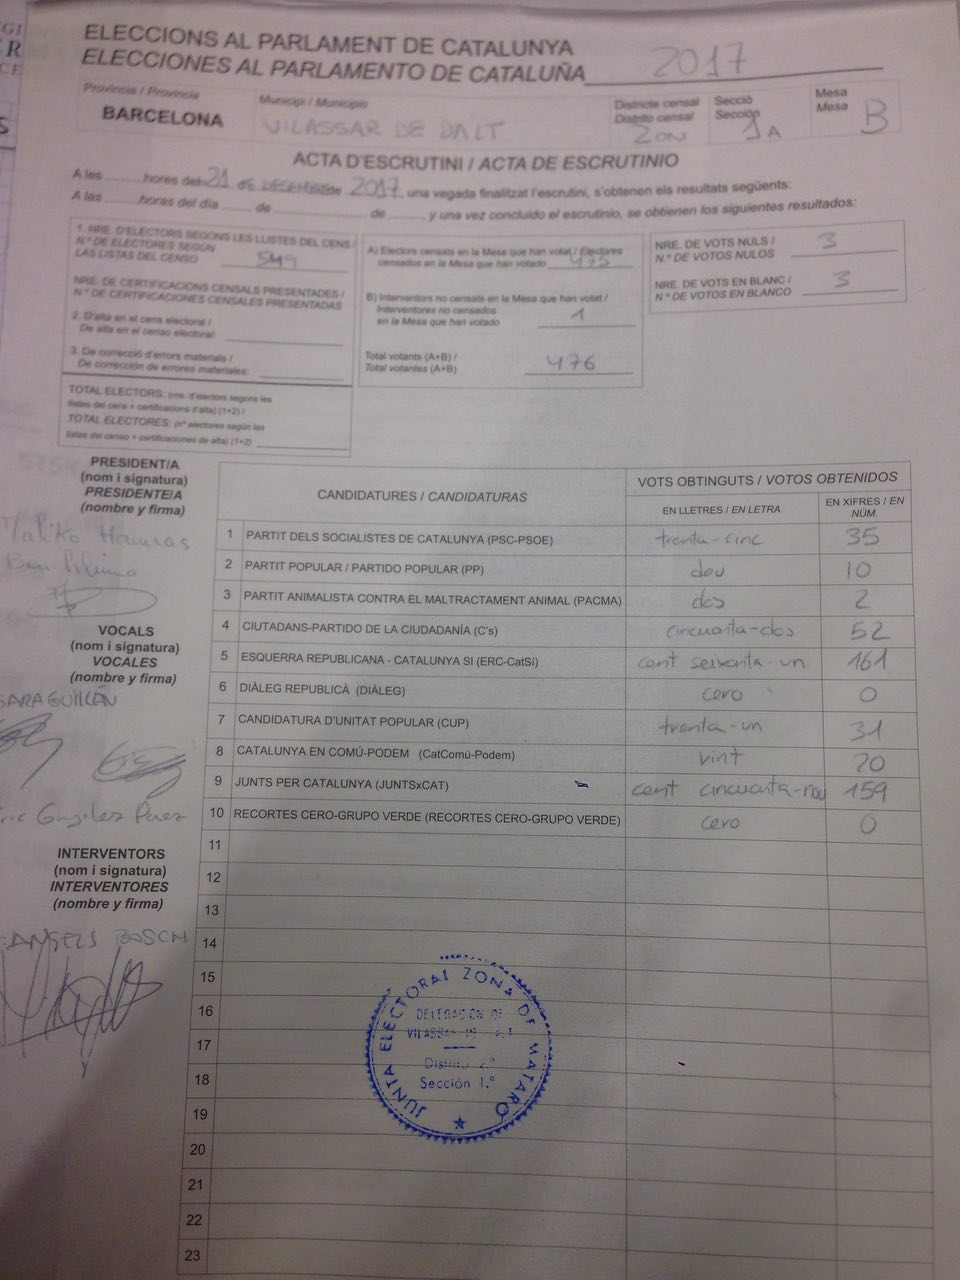 ELECCIONS AL PARLAMENT DE CATALUNYA
ELECCIONES AL PARLAMENTO DE CATALUÑA 2017
Província / Provincia
BARCELONA
Municipi / Municipio
VILASSAR DE DALT
Districte censal
Distrito censal
2ON
Secció
Sección
1A
Mesa
Mesa
B
ACTA D'ESCRUTINI / ACTA DE ESCRUTINIO
A les hores del 21 de DESEMBRE de 2017, una vegada finalitzat l'escrutini, s'obtenen els resultats següents:
A las horas del día de de y una vez concluido el escrutinio, se obtienen los siguientes resultados:
1. NRE. D'ELECTORS SEGONS LES LLISTES DEL CENS /
N.º DE ELECTORES SEGÚN
LAS LISTAS DEL CENSO 549
NRE. DE CERTIFICACIONS CENSALS PRESENTADES /
N.º DE CERTIFICACIONES CENSALES PRESENTADAS
2. D'alta en el cens electoral /
De alta en el censo electoral:
3. De correcció d'errors materials /
De corrección de errores materiales:
TOTAL ELECTORS: (nre. d'electors segons les
llistes del cens + certificacions d'alta) (1+2) /
TOTAL ELECTORES: (nº electores según las
listas del censo + certificaciones de alta) (1+2)
A) Electors censats en la Mesa que han votat / Electores
censados en la Mesa que han votado 475
B) Interventors no censats en la Mesa que han votat /
Interventores no censados
en la Mesa que han votado 1
Total votants (A+B) /
Total votantes (A+B) 476
NRE. DE VOTS NULS /
N.º DE VOTOS NULOS 3
NRE. DE VOTS EN BLANC /
N.º DE VOTOS EN BLANCO 3
PRESIDENT/A
(nom i signatura)
PRESIDENTE/A
(nombre y firma)
VOCALS
(nom i signatura)
VOCALES
(nombre y firma)
SARA GUILLÉN
INTERVENTORS
(nom i signatura)
INTERVENTORES
(nombre y firma)
ANGELS BOSCH
CANDIDATURES / CANDIDATURAS
VOTS OBTINGUTS / VOTOS OBTENIDOS
EN LLETRES / EN LETRA
EN XIFRES / EN NÚM.
1 PARTIT DELS SOCIALISTES DE CATALUNYA (PSC-PSOE) trenta-cinc 35
2 PARTIT POPULAR / PARTIDO POPULAR (PP) deu 10
3 PARTIT ANIMALISTA CONTRA EL MALTRACTAMENT ANIMAL (PACMA) dos 2
4 CIUTADANS-PARTIDO DE LA CIUDADANÍA (C's) cincuanta-dos 52
5 ESQUERRA REPUBLICANA - CATALUNYA SÍ (ERC-CatSí) cent seixanta-un 161
6 DIÀLEG REPUBLICÀ (DIÀLEG) cero 0
7 CANDIDATURA D'UNITAT POPULAR (CUP) trenta-un 31
8 CATALUNYA EN COMÚ-PODEM (CatComú-Podem) vint 20
9 JUNTS PER CATALUNYA (JUNTSxCAT) cent cincuanta-nou 159
10 RECORTES CERO-GRUPO VERDE (RECORTES CERO-GRUPO VERDE) cero 0
11
12
13
14
15
16
17
18
19
20
21
22
23
JUNTA ELECTORAL ZONA DE MATARÓ
DELEGACIÓN DE
VILASSAR
Distrito 2.º
Sección 1.º